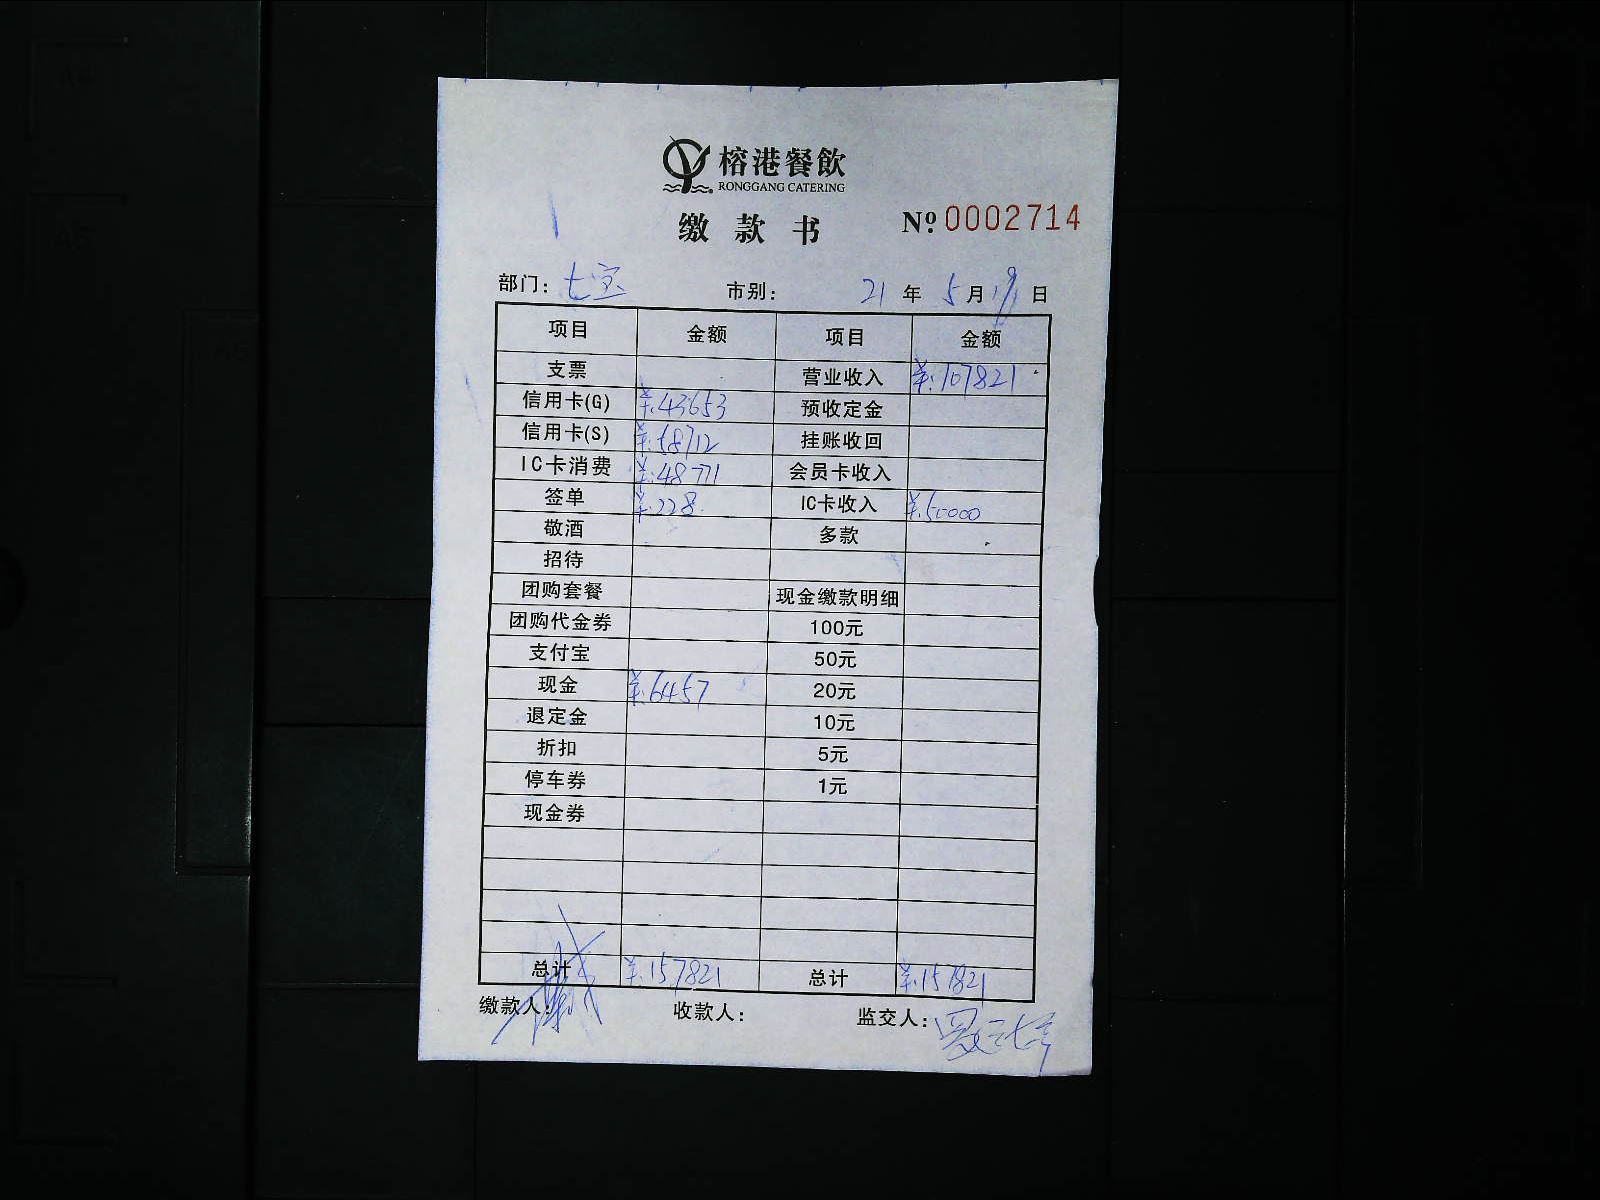 榕港餐飲
RONGGANG CATERING
缴款书 Nº 0002714
部门: 七宝 市别: 21 年 5 月 19 日
项目 金额 项目 金额
支票 营业收入 ¥:107821
信用卡(G) ¥:43653 预收定金
信用卡(S) ¥:58712 挂账收回
IC卡消费 ¥:48771 会员卡收入
签单 ¥:228 IC卡收入 ¥:50000
敬酒 多款
招待
团购套餐 现金缴款明细
团购代金券 100元
支付宝 50元
现金 ¥:6457 20元
退定金 10元
折扣 5元
停车券 1元
现金券
总计 ¥:157821 总计 ¥:157821
缴款人: 收款人: 监交人: